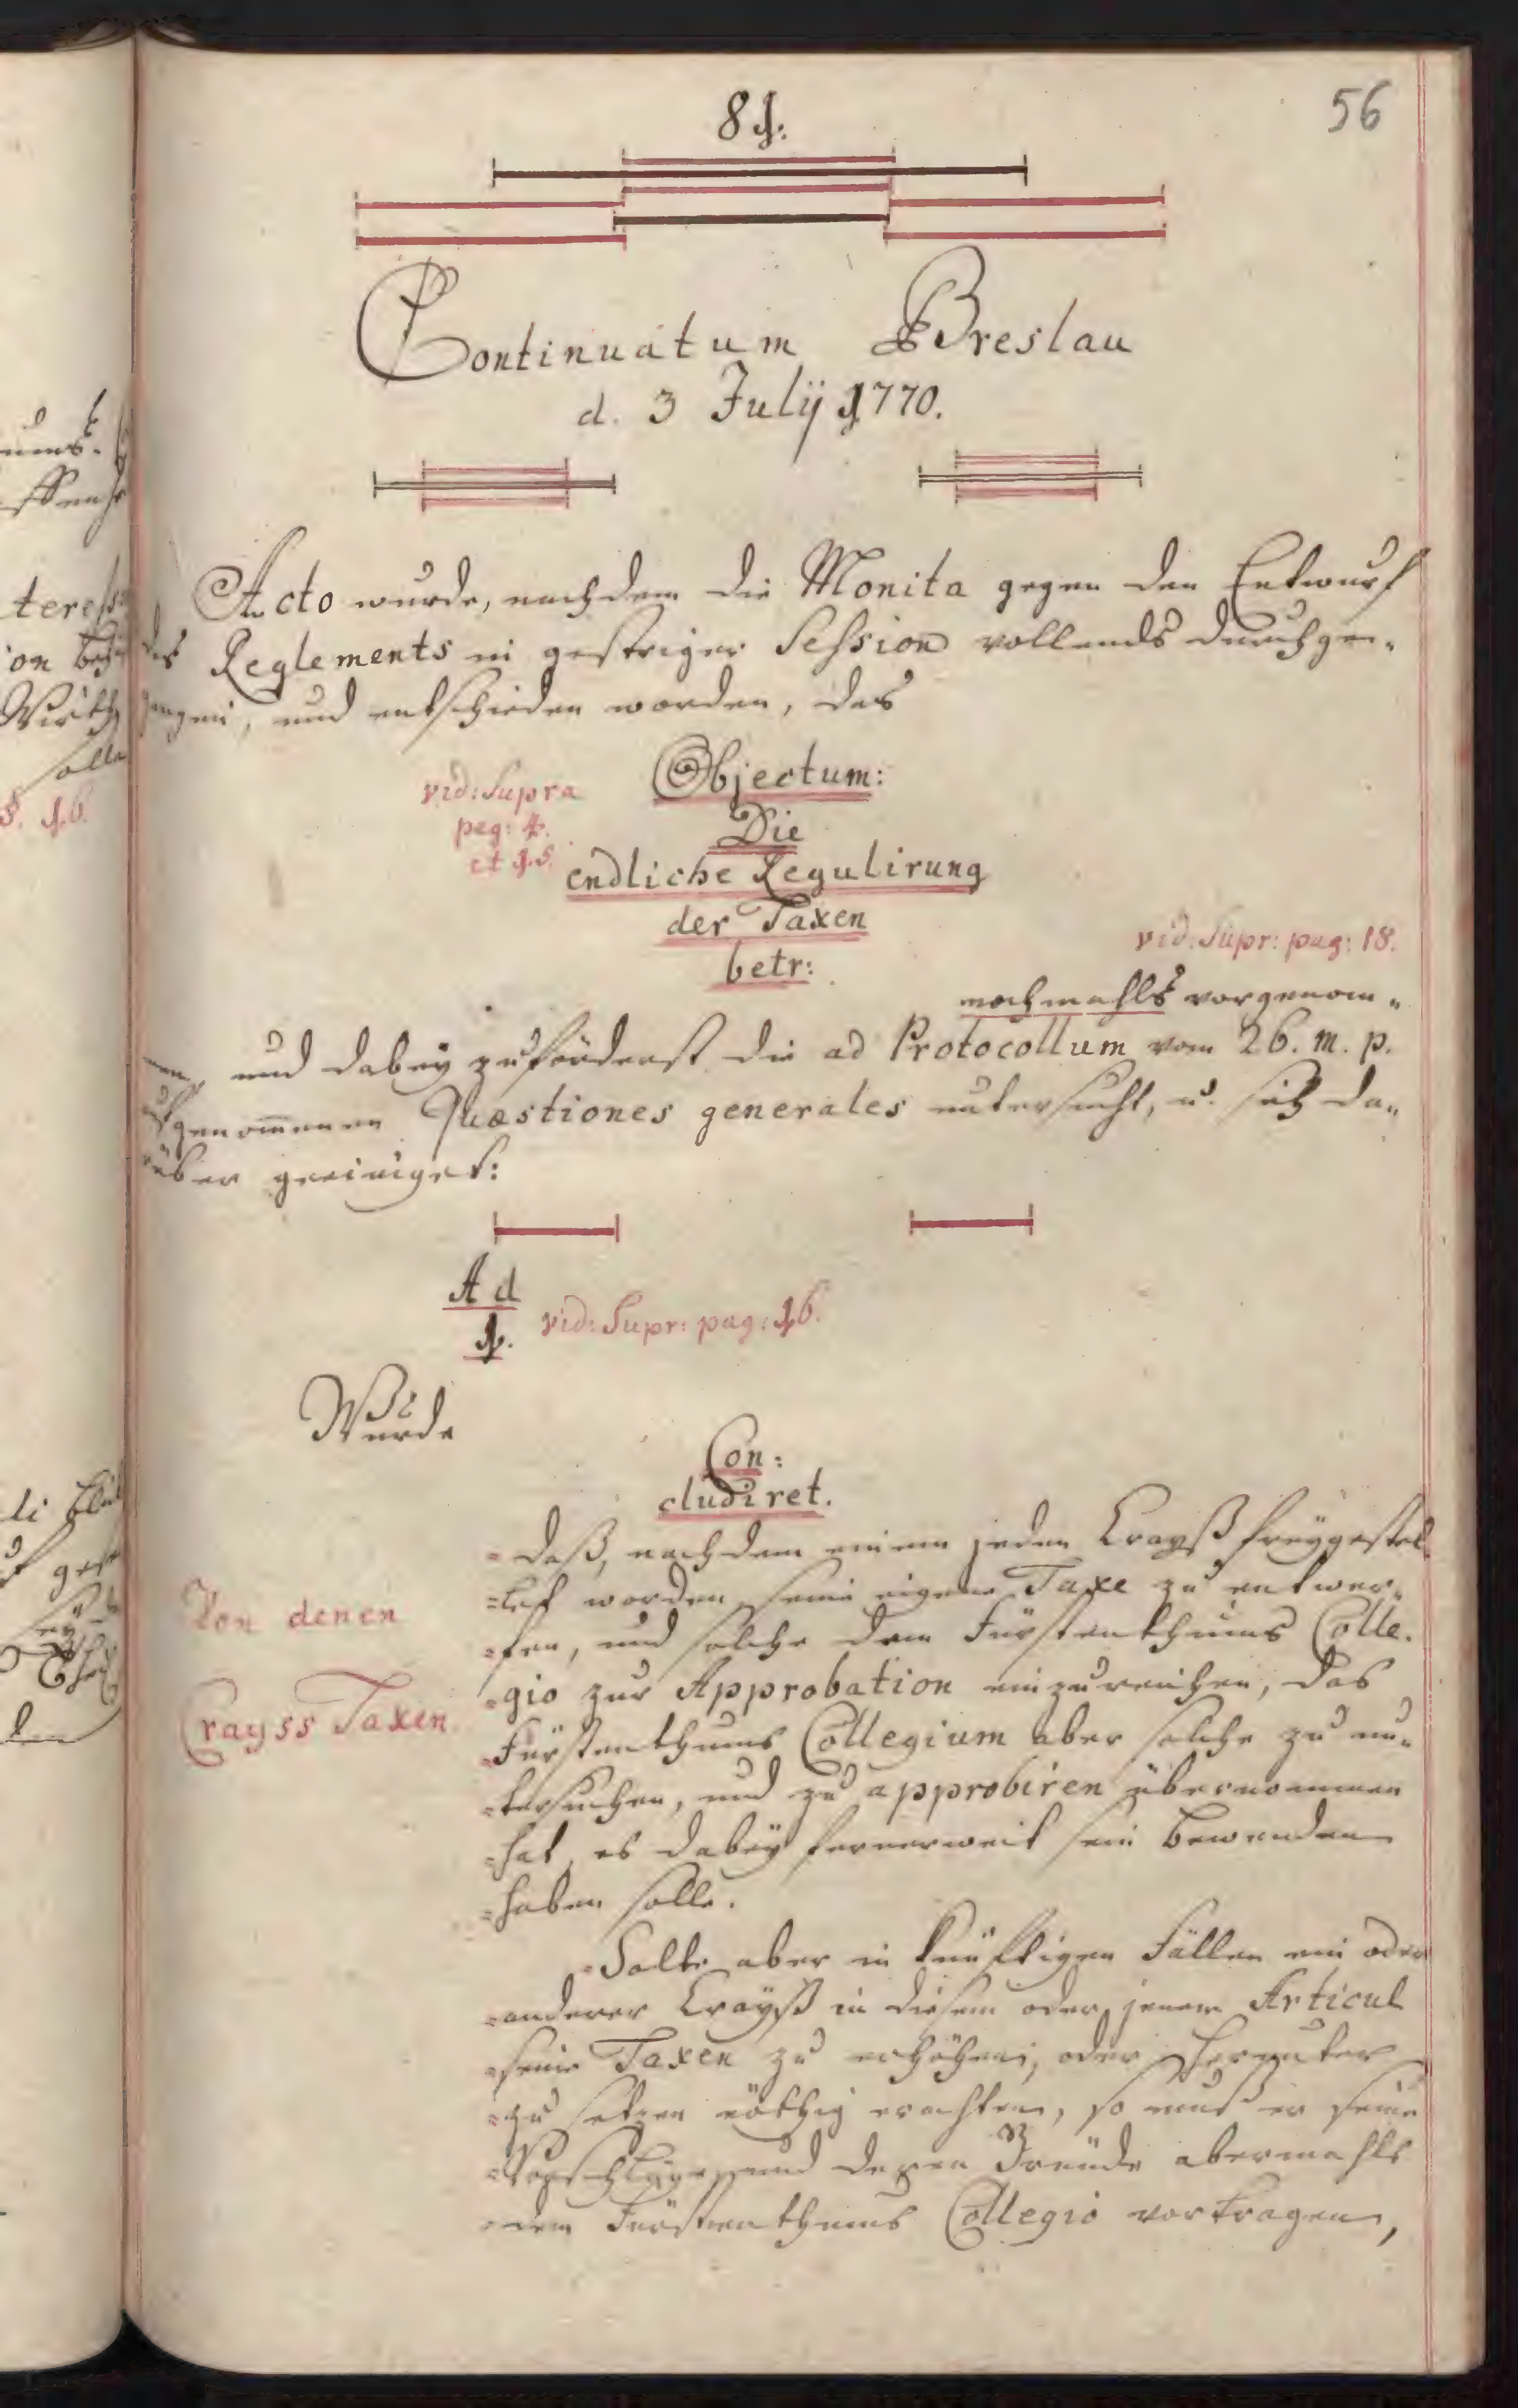 56
81.
Continuatum Breslau
d. 3 Julij 1770.
Acto wurde, nachdem die Monita gegen den Entwurf
des Reglements in gestriger Session vollends durchge„
gangen, und entschieden worden, das
vid: Supra
pag: 4.
et 15.
Objectum:
Die
endliche Regulirung
der Taxen
betr:
vid: Supr: pag: 18.
nochmahls vorgenom„
men, und dabey zuförderst die ad Protocollum vom 26. m. p.
genom̅enen Quæstiones generales untersucht, u. sich da„
rüber geeiniget:
Ad
1.
vid: Supr: pag: 16.
Wurde
Con:
cludiret.
Von denen
Crayss Taxen
daß, nachdem einem jeden Crayß freygestel
let worden, seine eigene Taxe zu entwer„
fen, und solche dem Fürstenthums Colle„
gio zur Approbation einzureichen, das
Fürstenthums Collegium aber solche zu un„
tersuchen, und zu approbiren übernommen
hat, es dabey fernerweit sein Bewenden
haben solle.
Solte aber in künftigen Fällen ein oder
anderer Crayß in diesem oder jenem Articul
seine Taxen zu erhöhen, oder herunter
zu setzen nöthig erachten, so muß er seine
Vorschläge und deren Gründe abermahls
dem Fürstenthums Collegio vortragen,